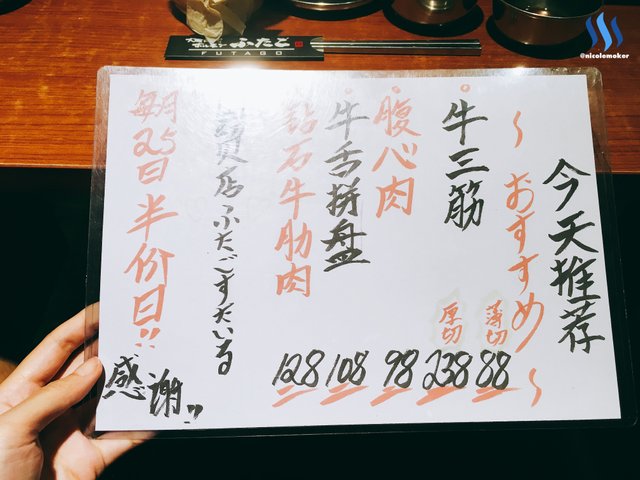 @nicolemoker
ふたご
FUTAGO
今天推荐
~おすすめ~
牛三筋
薄切 88
厚切 238
腹心肉 98
牛舌拼盘 108
钻石牛肋肉 128
店ふたごすたいる
每月25日半价日!!
感谢!!